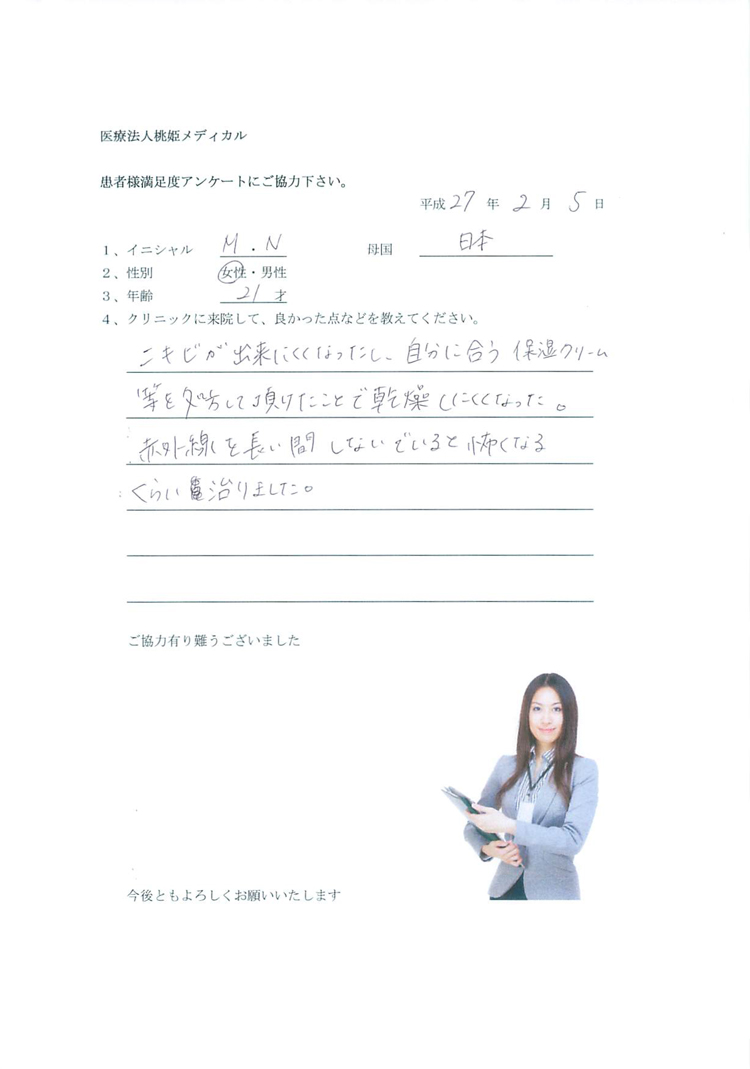 医療法人桃姫メディカル
患者様満足度アンケートにご協力下さい。
平成 27 年 2 月 5 日
1、イニシャル M.N 母国 日本
2、性別 女性・男性
3、年齢 21 才
4、クリニックに来院して、良かった点などを教えてください。
ニキビが出来にくくなったし、自分に合う保湿クリーム
等を処方して頂けたことで乾燥しにくくなった。
赤外線を長い間しないでいると怖くなる
くらい治りました。
ご協力有り難うございました
今後ともよろしくお願いいたします